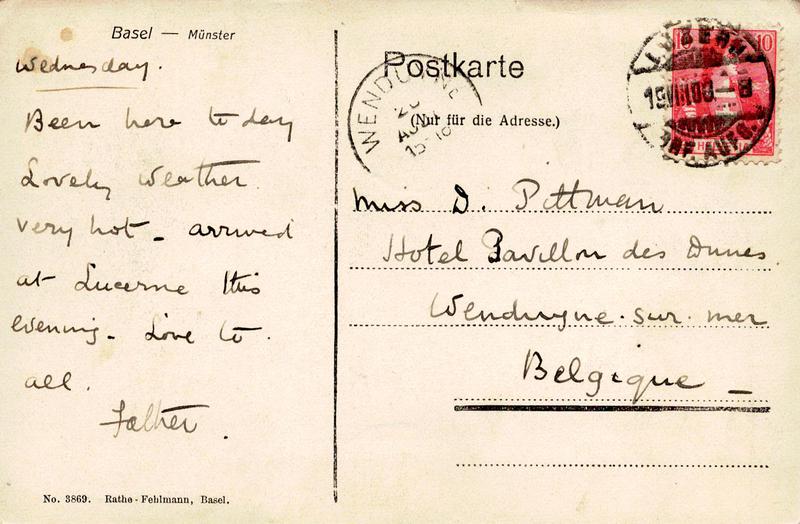 Basel — Münster
Wednesday.
Been here to day
Lovely weather.
very hot - arrived
at Lucerne this
evening - Love to
all.
Father.
No. 3869. Rathe-Fehlmann, Basel.
Postkarte
(Nur für die Adresse.)
WENDUYNE
AOU
15-16
LUZERN
10
10
BRF. AUFG.
HEL
Miss D. Pittman
Hotel Pavillon des Dunes.
Wenduyne. sur. mer
Belgique —